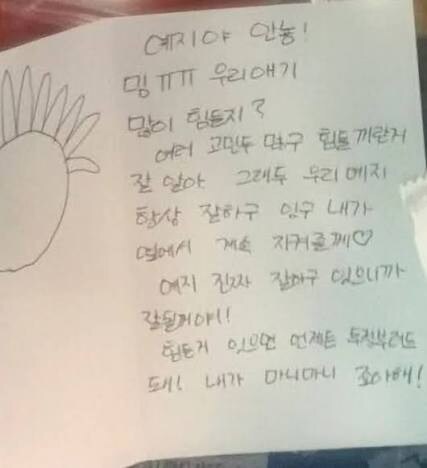 예지야 안뇽!
밍 ㅠㅠ 우리애기
많이 힘들지?
여러 고민두 많구 힘들꺼란거
잘 알아 그래두 우리 예지
항상 잘하구 있구 내가
옆에서 계속 지켜줄께♡
예지 진짜 잘하구 있으니까
잘될거야!
힘든거 있으면 언제든 투정부려두
돼! 내가 마니마니 조아해!